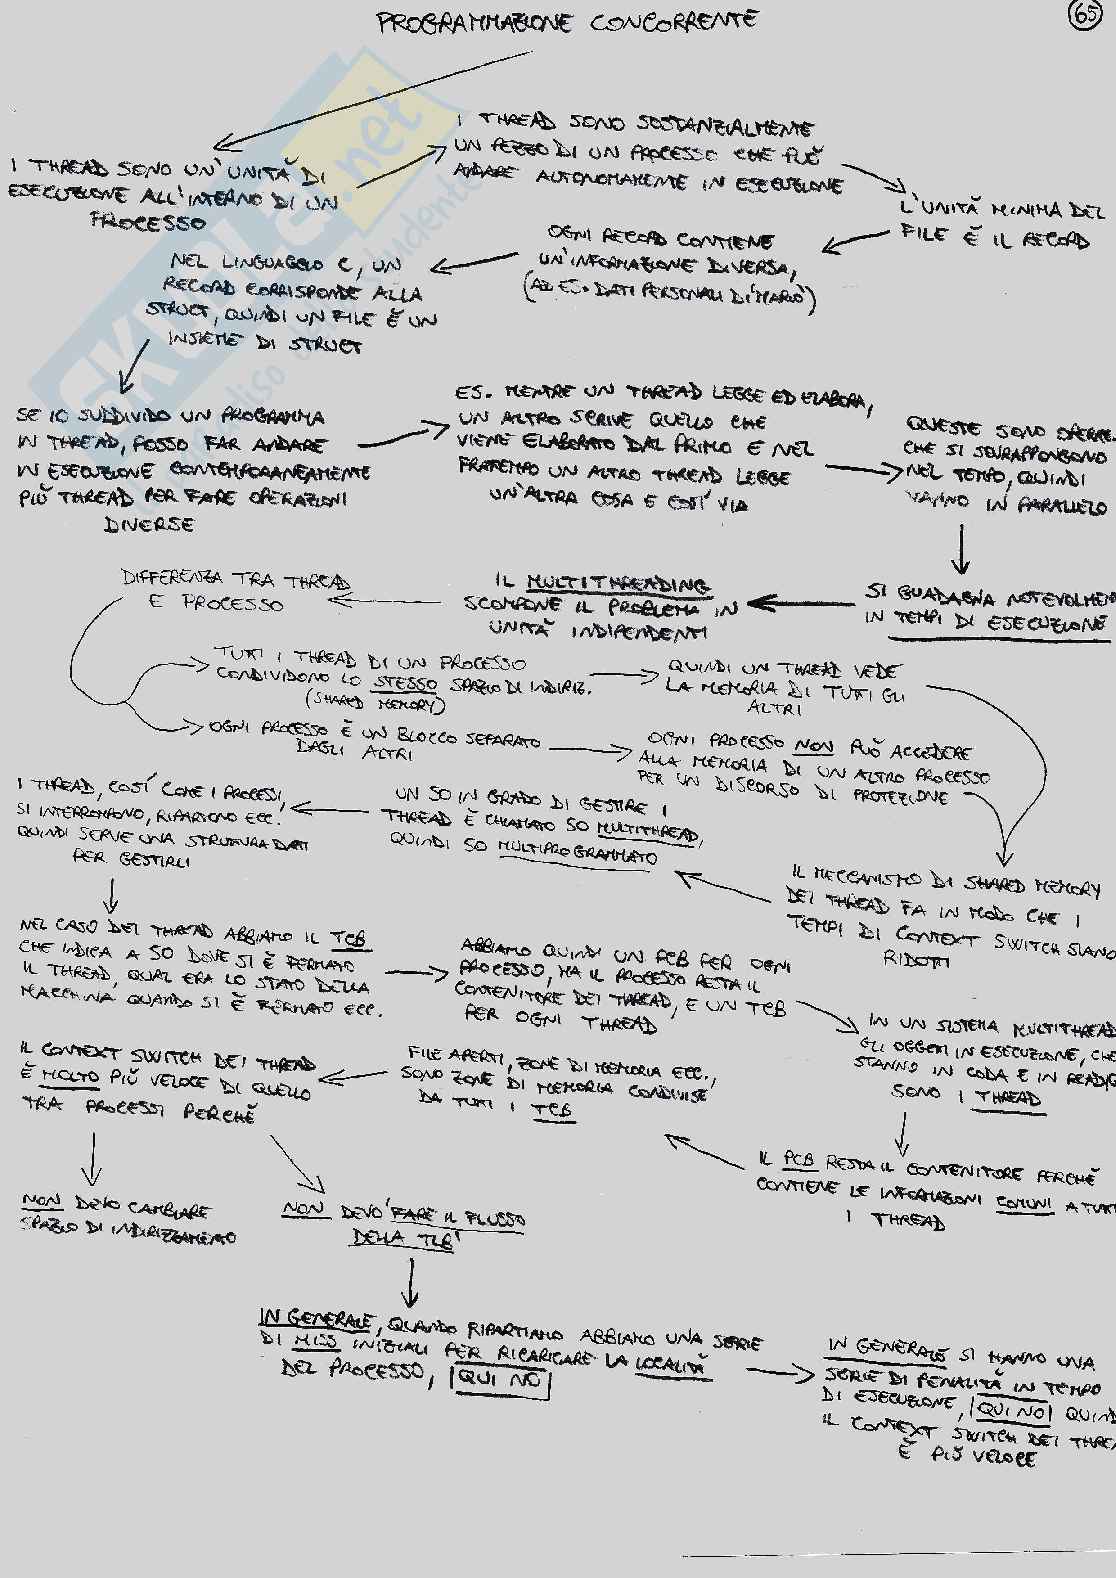 PROGRAMMAZIONE CONCORRENTE
65
I THREAD SONO UN'UNITÀ DI
ESECUZIONE ALL'INTERNO DI UN
PROCESSO
I THREAD SONO SOSTANZIALMENTE
UN PEZZO DI UN PROCESSO CHE PUÒ
ANDARE AUTONOMAMENTE IN ESECUZIONE
L'UNITÀ MINIMA DEL
FILE È IL RECORD
OGNI RECORD CONTIENE
UN'INFORMAZIONE DIVERSA,
(AD ES. DATI PERSONALI DI 'MARIO')
NEL LINGUAGGIO C, UN
RECORD CORRISPONDE ALLA
STRUCT, QUINDI UN FILE È UN
INSIEME DI STRUCT
SE IO SUDDIVIDO UN PROGRAMMA
IN THREAD, POSSO FAR ANDARE
IN ESECUZIONE CONTEMPORANEAMENTE
PIÙ THREAD PER FARE OPERAZIONI
DIVERSE
ES. MENTRE UN THREAD LEGGE ED ELABORA,
UN ALTRO SCRIVE QUELLO CHE
VIENE ELABORATO DAL PRIMO E NEL
FRATEMPO UN ALTRO THREAD LEGGE
UN'ALTRA COSA E COSI' VIA
QUESTE SONO OPERAZ.
CHE SI SOVRAPPONGONO
NEL TEMPO, QUINDI
VANNO IN PARALLELO
SI GUADAGNA NOTEVOLMEN
IN TEMPI DI ESECUZIONE
IL MULTITHREADING
SCOMPONE IL PROBLEMA IN
UNITÀ INDIPENDENTI
DIFFERENZA TRA THREAD
E PROCESSO
TUTTI I THREAD DI UN PROCESSO
CONDIVIDONO LO STESSO SPAZIO DI INDIRIZ.
(SHARED MEMORY)
QUINDI UN THREAD VEDE
LA MEMORIA DI TUTTI GLI
ALTRI
OGNI PROCESSO È UN BLOCCO SEPARATO
DAGLI ALTRI
OGNI PROCESSO NON PUÒ ACCEDERE
ALLA MEMORIA DI UN ALTRO PROCESSO
PER UN DISCORSO DI PROTEZIONE
IL MECCANISMO DI SHARED MEMORY
DEI THREAD FA IN MODO CHE I
TEMPI DI CONTEXT SWITCH SIANO
RIDOTTI
UN SO IN GRADO DI GESTIRE I
THREAD È CHIAMATO SO MULTITHREAD,
QUINDI SO MULTIPROGRAMMATO
I THREAD, COSÍ COME I PROCESSI,
SI INTERROMPONO, RIPARTONO ECC.
QUINDI SERVE UNA STRUTTURA DATI
PER GESTIRLI
NEL CASO DEI THREAD ABBIAMO IL TCB
CHE INDICA A SO DOVE SI È FERMATO
IL THREAD, QUAL ERA LO STATO DELLA
MACCHINA QUANDO SI È FERMATO ECC.
ABBIAMO QUINDI UN PCB PER OGNI
PROCESSO, MA IL PROCESSO RESTA IL
CONTENITORE DEI THREAD, E UN TCB
PER OGNI THREAD
IN UN SISTEMA MULTITHREAD
GLI OGGETTI IN ESECUZIONE, CHE
STANNO IN CODA E IN READY,
SONO I THREAD
IL PCB RESTA IL CONTENITORE PERCHÈ
CONTIENE LE INFORMAZIONI COMUNI A TUTTI
I THREAD
FILE APERTI, ZONE DI MEMORIA ECC.,
SONO ZONE DI MEMORIA CONDIVISE
DA TUTTI I TCB
IL CONTEXT SWITCH DEI THREAD
È MOLTO PIÙ VELOCE DI QUELLO
TRA PROCESSI PERCHÈ
NON DEVO CAMBIARE
SPAZIO DI INDIRIZZAMENTO
NON DEVO 'FARE IL FLUSSO
DELLA TLB'
IN GENERALE, QUANDO RIPARTIAMO ABBIAMO UNA SERIE
DI MISS INIZIALI PER RICARICARE LA LOCALITÀ
DEL PROCESSO, QUI NO
IN GENERALE SI HANNO UNA
SERIE DI PENALITÀ IN TEMPO
DI ESECUZIONE, QUI NO QUIND
IL CONTEXT SWITCH DEI THREA
È PIÙ VELOCE
SKUOLA.net